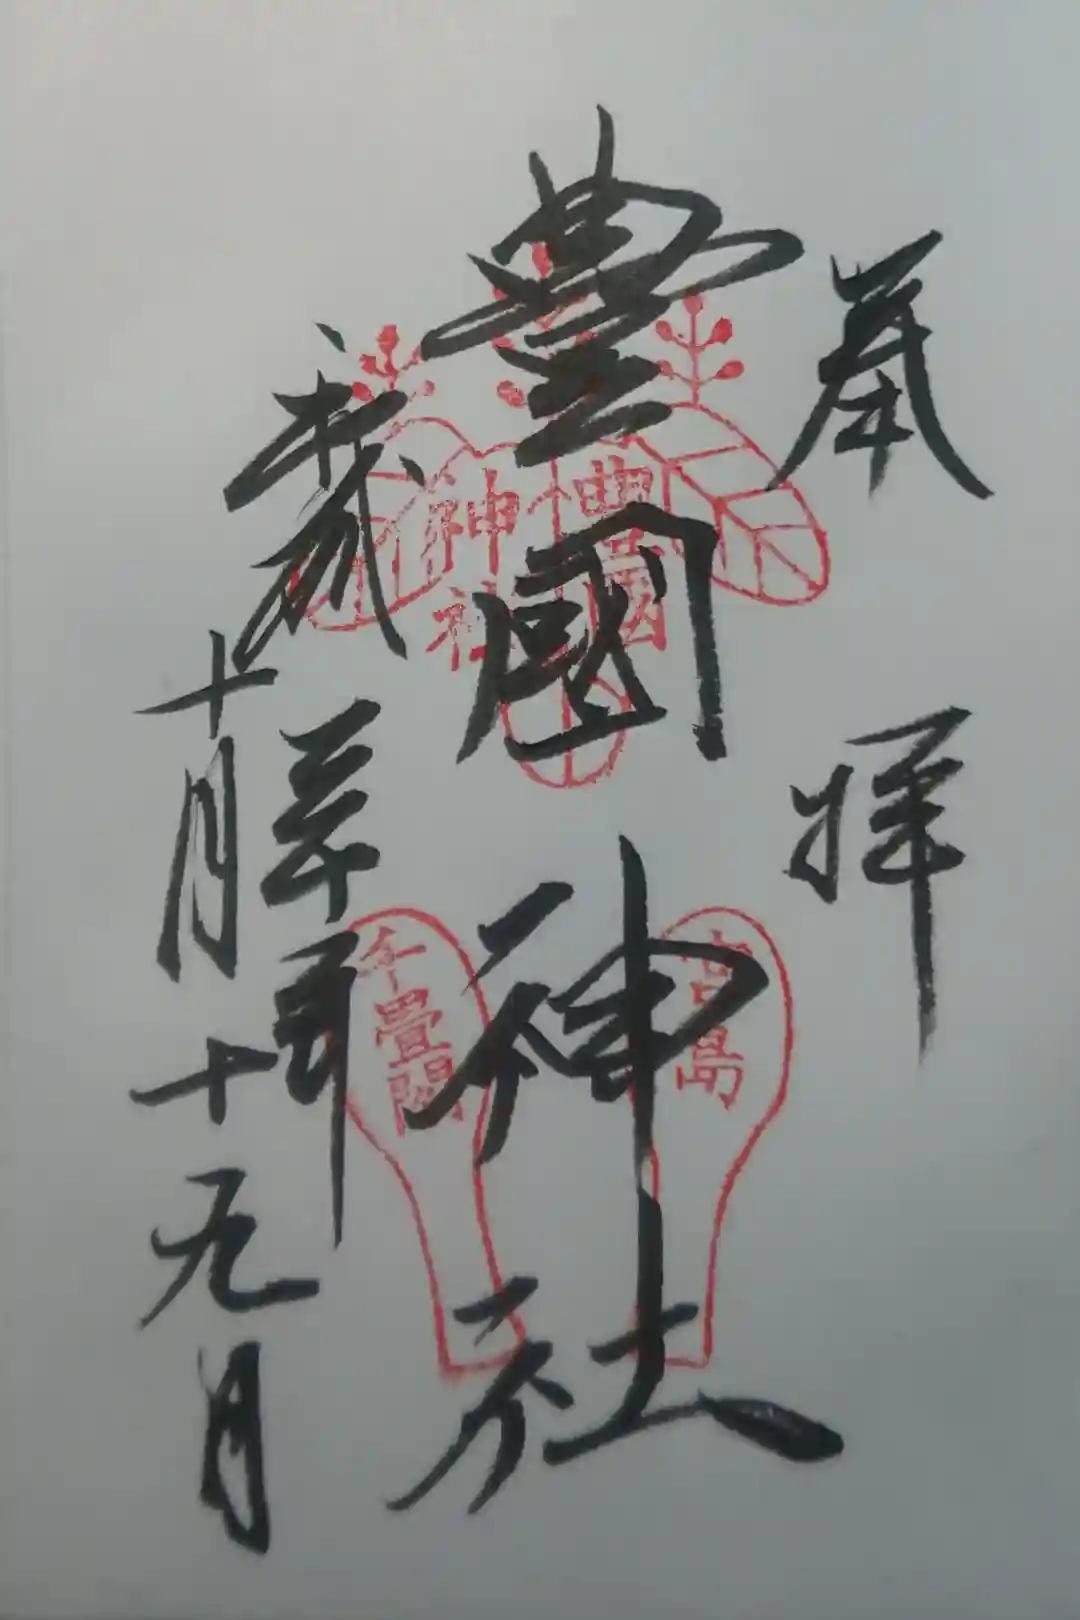 奉拝
豊國神社
十月十九日
豊國
神社
宮島
千畳閣